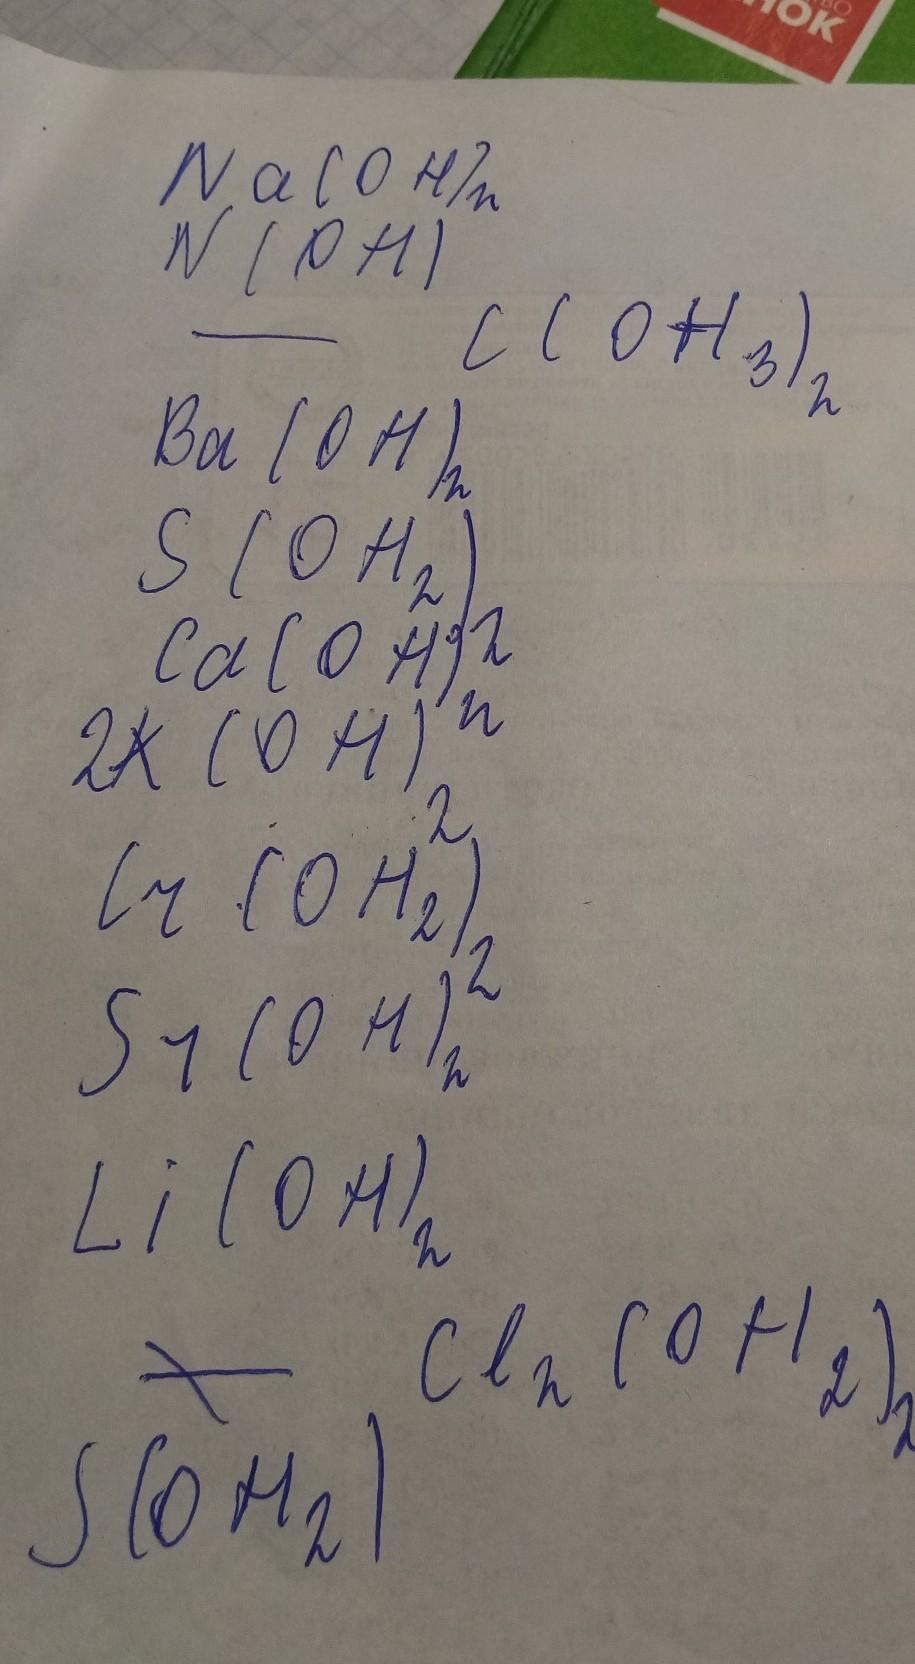 НОК
Na(OH)2
N(OH)
— C(OH3)2
Ba(OH)2
S(OH2)2
Ca(OH)2
2K(OH)2
Cr(OH2)2
Sr(OH)2
Li(OH)2
— Cl2(OH2)2
S(OH2)